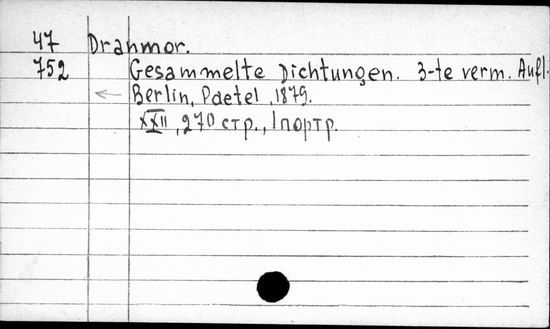 47 Dranmor.
752 Gesammelte Dichtungen. 3-te verm. Aufl.
Berlin, Paetel, 1879.
XXII, 270 стр., 1 портр.